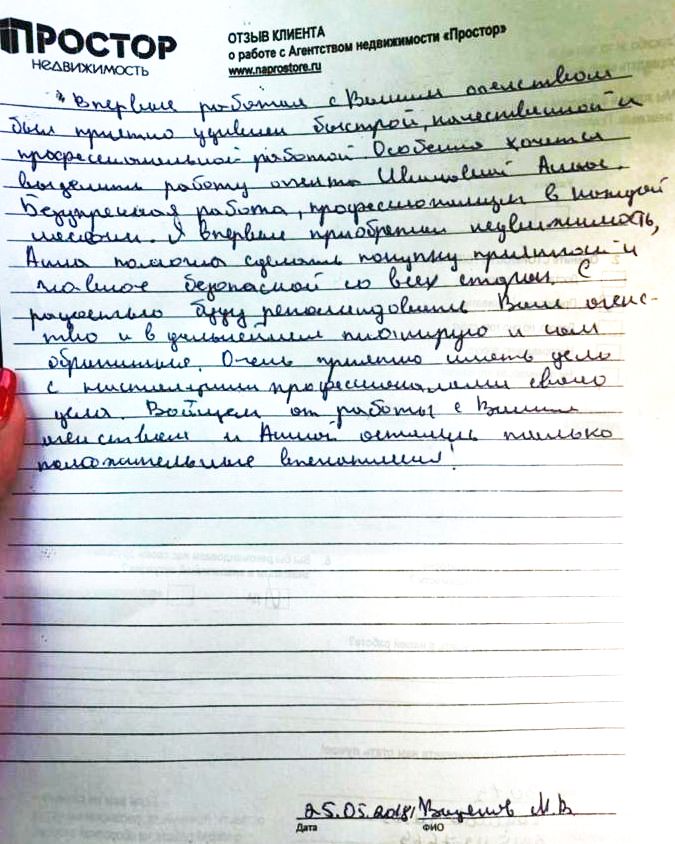 ПРОСТОР
НЕДВИЖИМОСТЬ
ОТЗЫВ КЛИЕНТА
о работе с Агентством недвижимости «Простор»
www.naprostore.ru
Впервые работал с Вашим агенством
был приятно удивлен быстрой, качественной и
профессиональной работой. Особенно хочется
выделить работу агента Анны.
Безупречная работа, профессионализм в каждой
мелочи. Я впервые приобретал недвижимость,
Анна помогла сделать покупку приятной и
главное безопасной со всех сторон. С
радостью буду рекомендовать Ваше агенс-
тво и в дальнейшем планирую к вам
обратиться. Очень приятно иметь дело
с настоящими профессионалами своего
дела. Вобщем от работы с Вашим
агенством и Анной остались только
положительные впечатления!
25.05.2018 М.В.
Дата ФИО